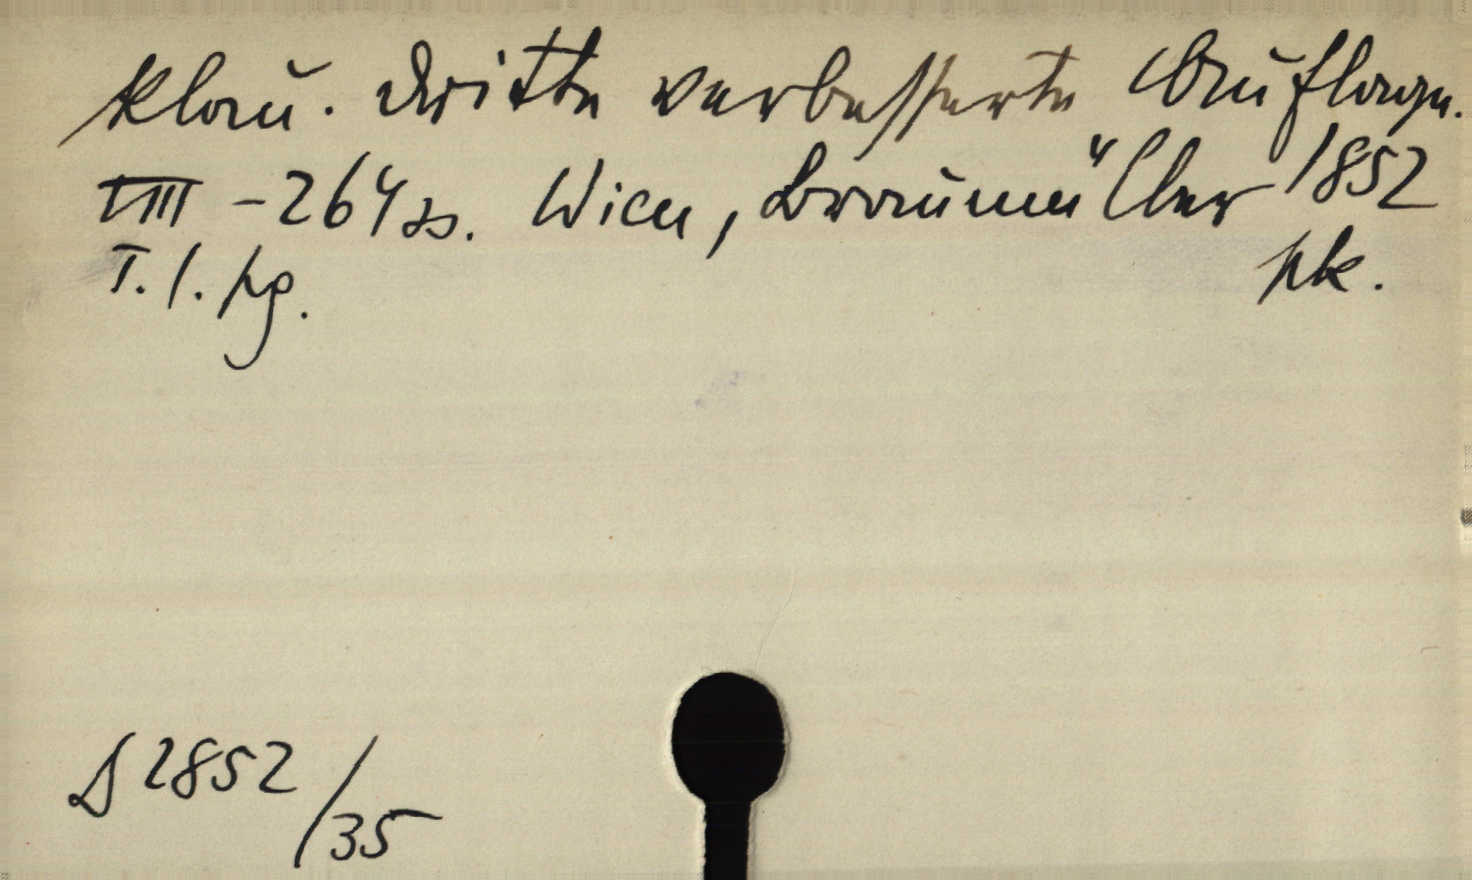 klau. Dritte verbesserte Auflage.
VIII - 264 ss. Wien, Braumüller 1852
I. l. pg. pk.
S 2852/35